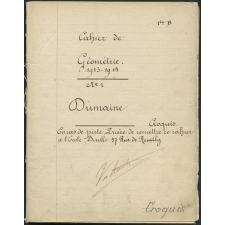 1re B
Cahier de
Géométrie.
1913-1914
Dumaine
Croquis.
En cas de perte Prière de remettre ce cahier
à l'Ecole 57 Rue de Reuilly
Croquis